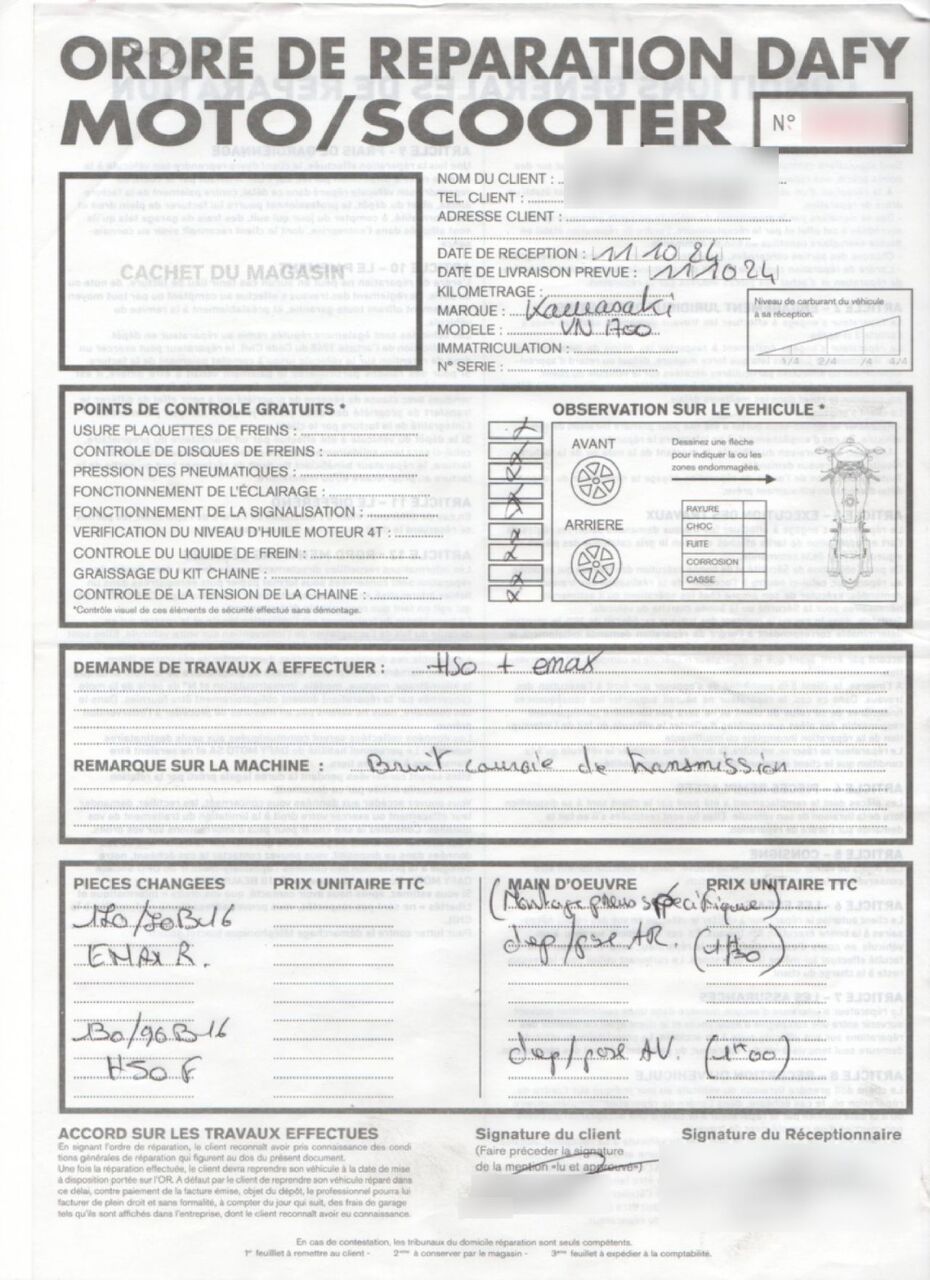 ORDRE DE REPARATION DAFY
MOTO/SCOOTER
N°
CACHET DU MAGASIN
NOM DU CLIENT :
TEL. CLIENT :
ADRESSE CLIENT :
DATE DE RECEPTION : 11 10 24
DATE DE LIVRAISON PREVUE : 11 10 24
KILOMETRAGE :
MARQUE : Kawasaki
MODELE : VN 1700
IMMATRICULATION :
N° SERIE :
Niveau de carburant du véhicule
à sa réception.
1/4 2/4 /4 4/4
POINTS DE CONTROLE GRATUITS *
USURE PLAQUETTES DE FREINS : x
CONTROLE DE DISQUES DE FREINS : x
PRESSION DES PNEUMATIQUES : x
FONCTIONNEMENT DE L'ÉCLAIRAGE : x
FONCTIONNEMENT DE LA SIGNALISATION : x
VERIFICATION DU NIVEAU D'HUILE MOTEUR 4T : x
CONTROLE DU LIQUIDE DE FREIN : x
GRAISSAGE DU KIT CHAINE : x
CONTROLE DE LA TENSION DE LA CHAINE : x
*Contrôle visuel de ces éléments de sécurité effectué sans démontage.
OBSERVATION SUR LE VEHICULE *
AVANT
ARRIERE
Dessinez une flèche
pour indiquer la ou les
zones endommagées.
RAYURE
CHOC
FUITE
CORROSION
CASSE
DEMANDE DE TRAVAUX A EFFECTUER : H50 + emax
REMARQUE SUR LA MACHINE : Bruit courroie de transmission
PIECES CHANGEES PRIX UNITAIRE TTC
170/70B16
EMAX R.
130/90B16
H50 F
MAIN D'OEUVRE PRIX UNITAIRE TTC
(Montage pneus spécifique)
dep/pse AR. (1H30)
dep/pose AV. (1H00)
ACCORD SUR LES TRAVAUX EFFECTUES
En signant l'ordre de réparation, le client reconnaît avoir pris connaissance des condi
tions générales de réparation qui figurent au dos du présent document.
Une fois la réparation effectuée, le client devra reprendre son véhicule à la date de mise
à disposition portée sur l'OR. A défaut par le client de reprendre son véhicule réparé dans
ce délai, contre paiement de la facture émise, objet du dépôt, le professionnel pourra lui
facturer de plein droit et sans formalité, à compter du jour qui suit, des frais de garage
tels qu'ils sont affichés dans l'entreprise, dont le client reconnaît avoir eu connaissance.
Signature du client
(Faire précéder la signature
de la mention «lu et approuvé»)
Signature du Réceptionnaire
En cas de contestation, les tribunaux du domicile réparation sont seuls compétents.
1er feuillet à remettre au client - 2ème à conserver par le magasin - 3ème feuillet à expédier à la comptabilité.